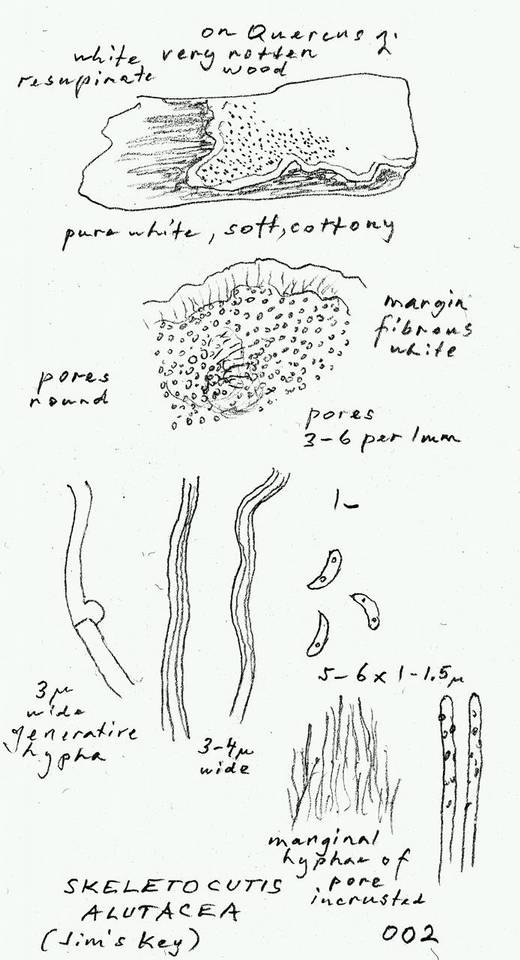 on Quercus g.
white very rotten
resupinate wood
pure white, soft, cottony
margin
fibrous
white
pores
round
pores
3-6 per 1mm
I-
5-6 x 1-1.5μ
3μ
wide
generative
hypha
3-4μ
wide
marginal
hyphae of
pore
incrusted
SKELETOCUTIS
ALUTACEA
(Jim's Key)
002